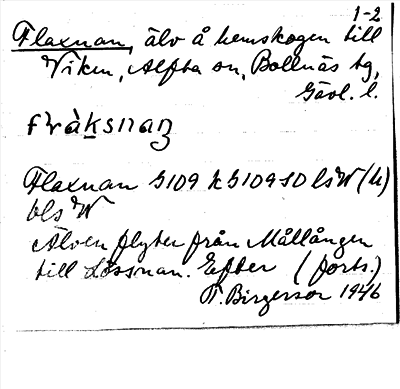 1-2
Flaxnan, älv å hemskogen till
Viken, Alfta sn, Bollnäs tg,
Gävl. l.
Flaxnan 5109 k 5109 SO bls W (h)
bls W
Älven flyter från Mållången
till Lössnan. Efter (forts.)
T. Birgersson 1946